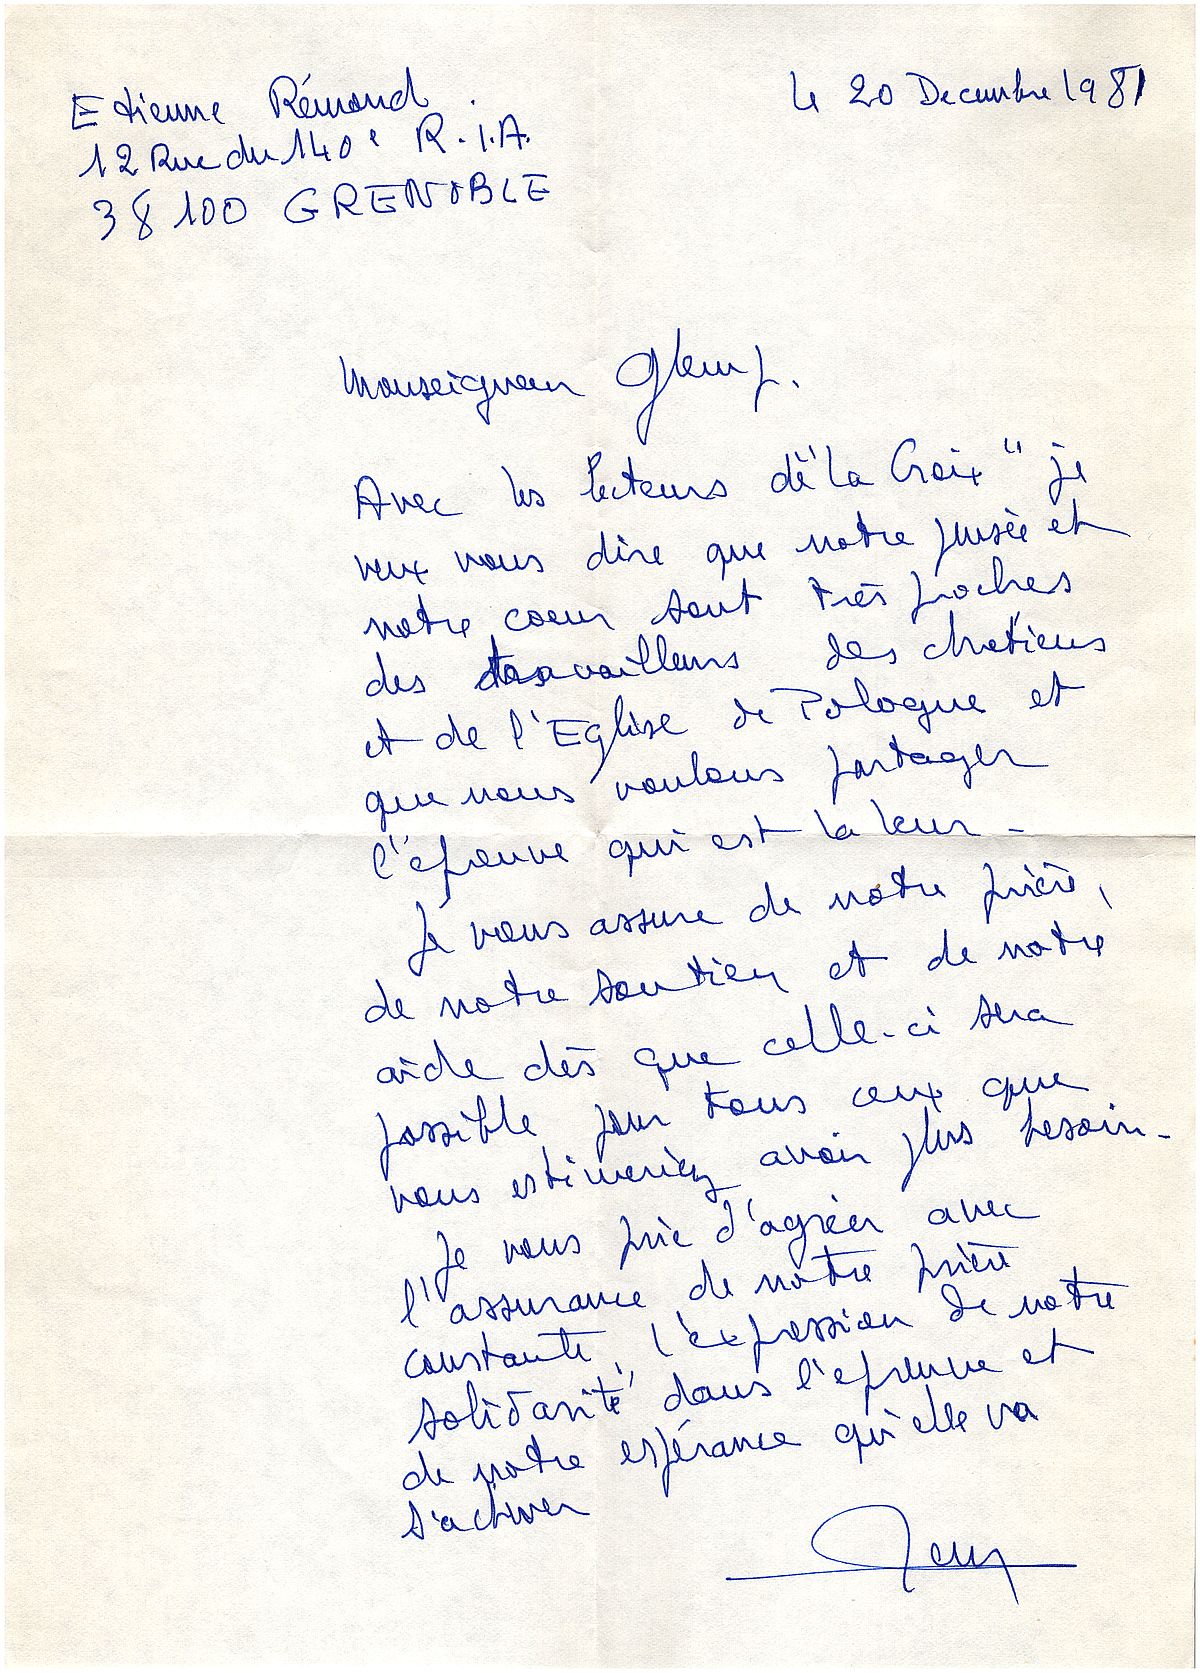 Etienne Rémond
12 Rue du 140e R.I.A.
38100 GRENOBLE
le 20 Decembre 1981
Monseigneur Glemp.
Avec les lecteurs de "La Croix" je
veux vous dire que notre pensée et
notre coeur sont très proches
des travailleurs des chrétiens
et de l'Eglise de Pologne et
que nous voulons partager
l'épreuve qui est la leur -
Je vous assure de notre prière,
de notre soutien et de notre
aide dès que celle-ci sera
possible pour tous ceux que
vous estimeriez avoir plus besoin -
Je vous prie d'agréer avec
l'assurance de notre prière
constante, l'expression de notre
solidarité dans l'épreuve et
de notre espérance qu'elle va
s'achever